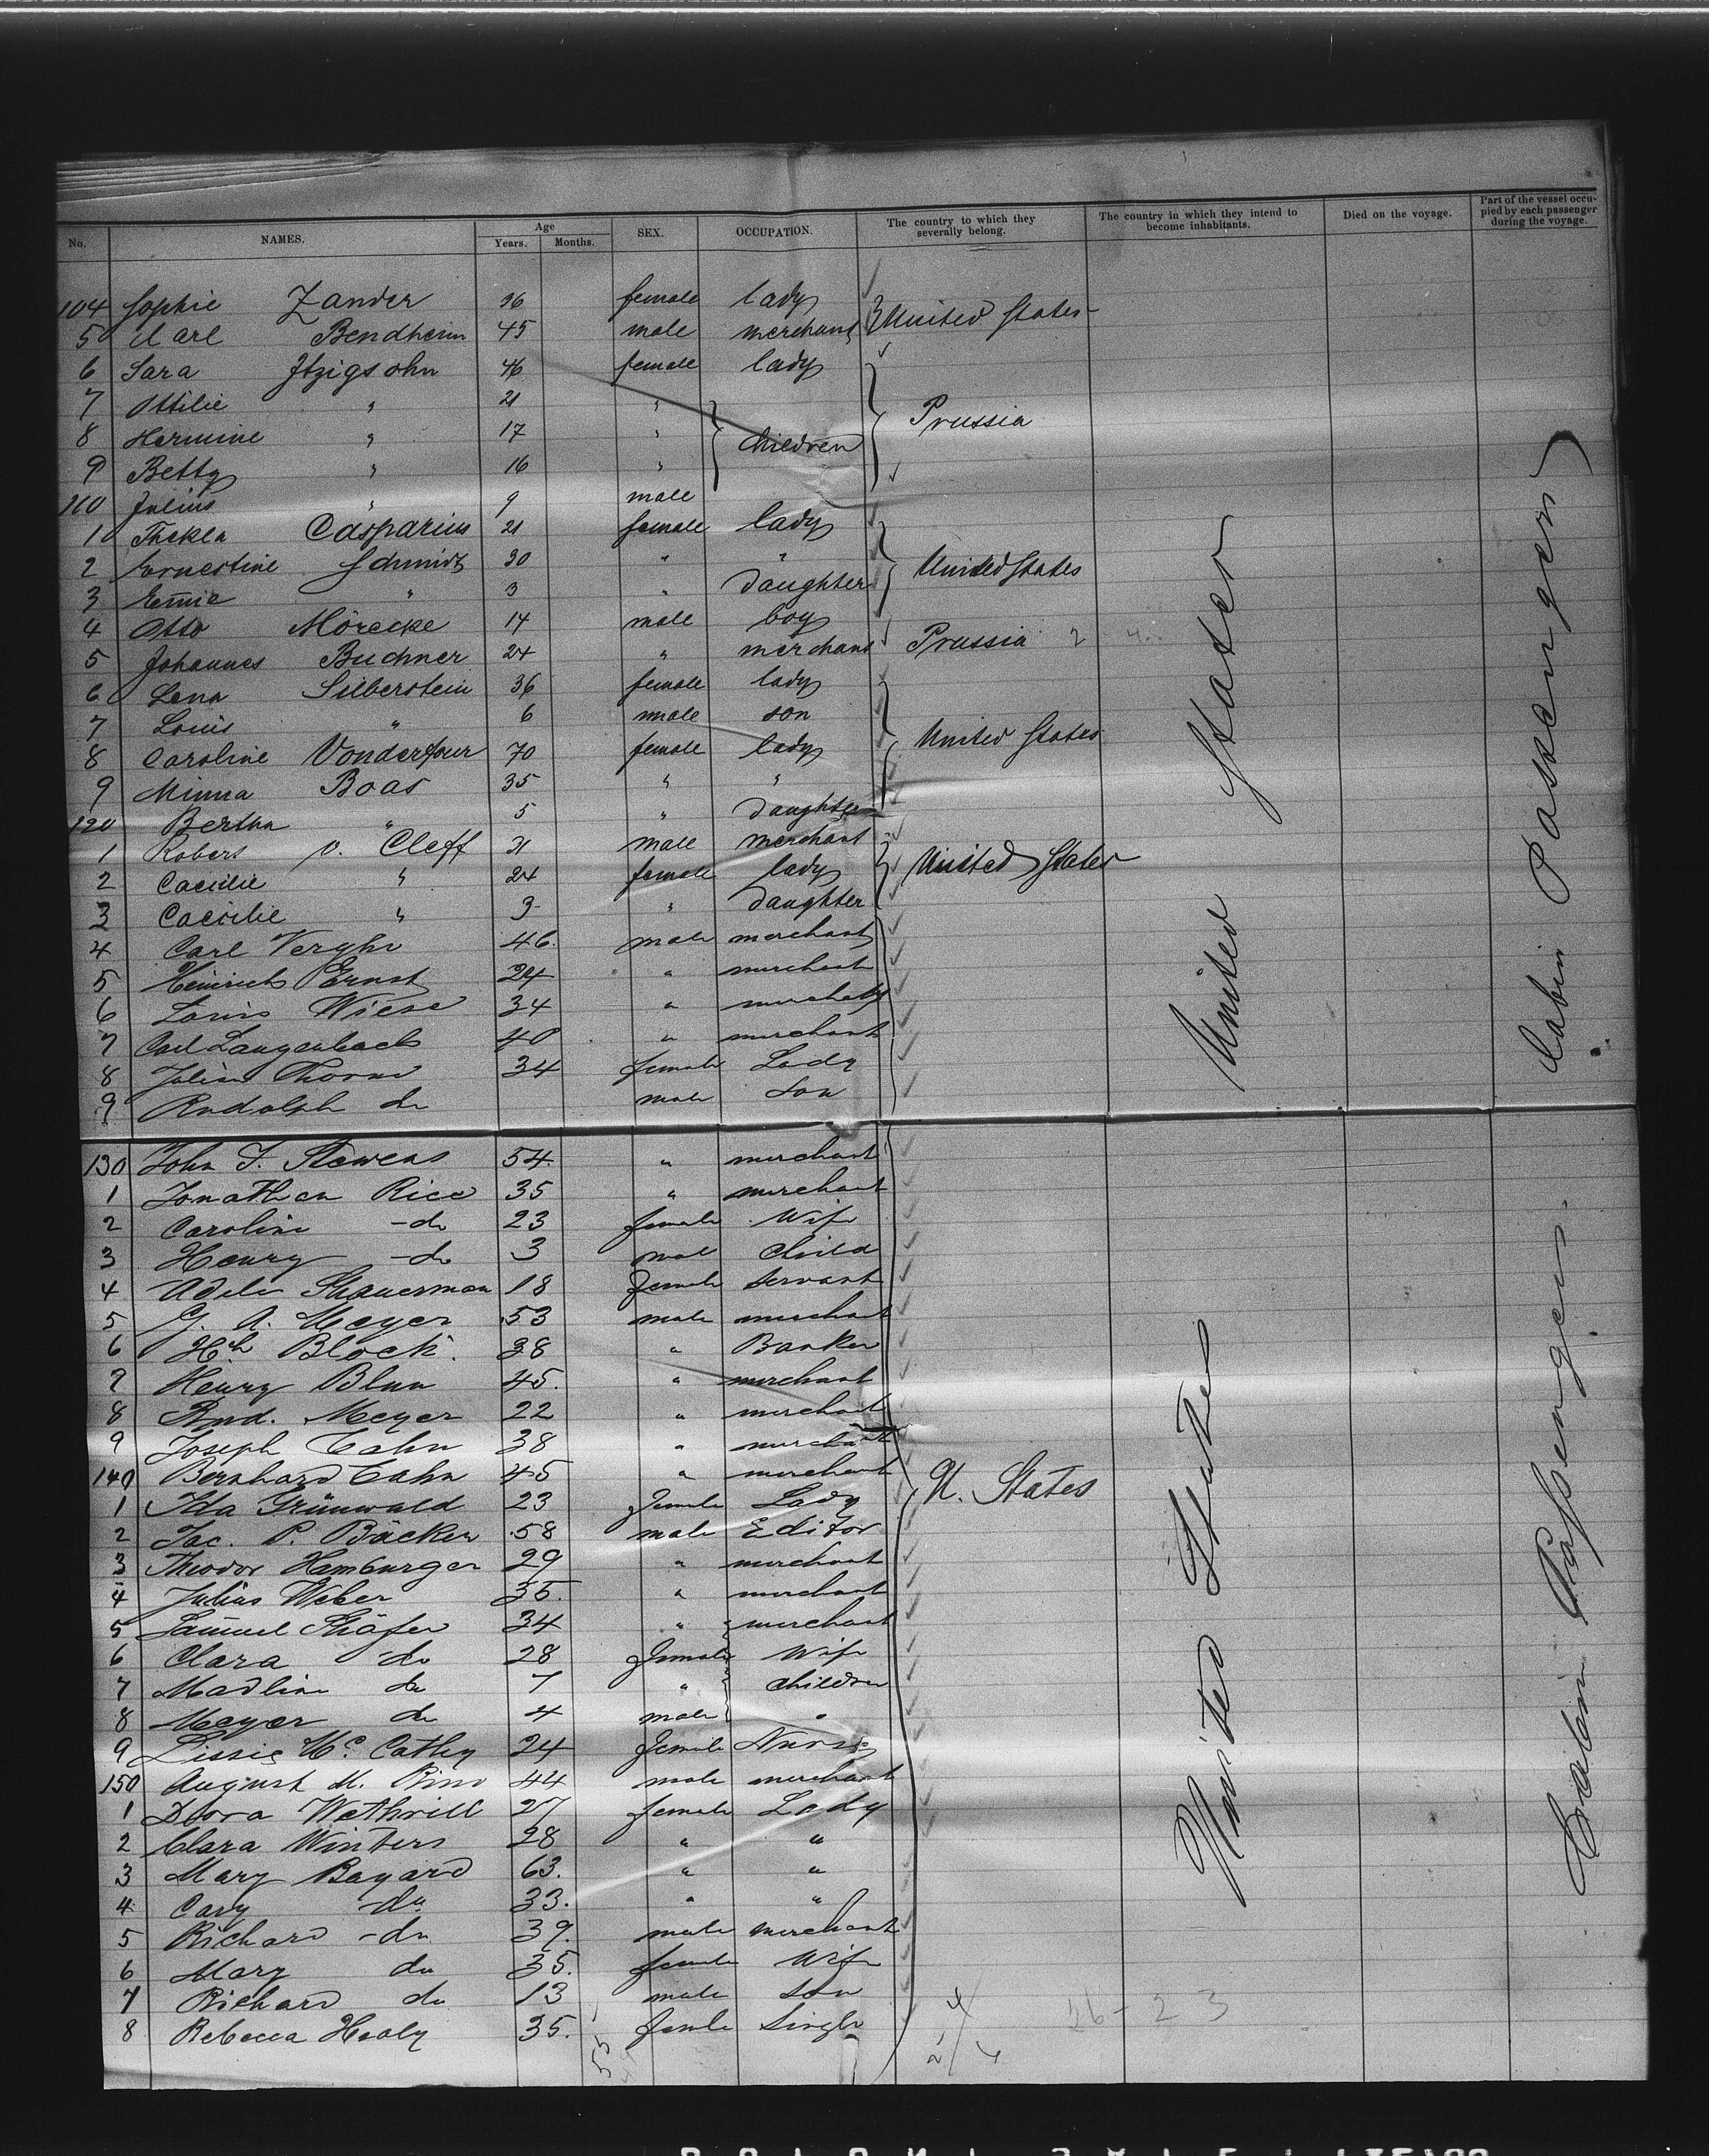 No. NAMES. Age Years. Months. SEX. OCCUPATION. The country to which they severally belong. The country in which they intend to become inhabitants. Died on the voyage. Part of the vessel occupied by each passenger during the voyage.
104 Sophie Zander 36 female lady } United States
5 Carl Bendheim 45 male merchant
6 Sara Itzigsohn 46 female lady
7 Ottilie " 21 "
8 Hermine " 17 " children } Prussia
9 Betty " 16 "
110 Julius " 9 male
1 Thekla Casparius 21 female lady
2 Ernestine Schmidt 30 " " United States
3 Emmie " 3 " daughter
4 Otto Mörecke 14 male boy
5 Johannes Buchner 24 " merchant Prussia
6 Lena Silberstein 36 female lady
7 Louis " 6 male son
8 Caroline Vonderfour 70 female lady United States
9 Minna Boas 35 " "
120 Bertha " 5 " daughter
1 Robert v. Cleff 31 male merchant
2 Caecilie " 24 female lady United States
3 Caecilie " 3 " daughter
4 Carl Verghi 46. male merchant
5 Heinrich Ernst 24 " merchant
6 Louis Wiese 34 " merchant
7 Carl Langenbach 40 " merchant
8 Julia Thorne 34 female Lady
9 Rudolph do male Son
United States
Cabin Passengers
130 John F. Stewens 54. " merchant
1 Jonathan Rice 35 " merchant
2 Caroline -do 23 female Wife
3 Henry -do 3 male Child
4 Adele 18 female servant
5 G. A. Meyer 53 male merchant
6 Hch Block. 38 " Banker
7 Henry Blun 45. " merchant
8 Rud. Meyer 22 " merchant
9 Joseph Cahn 38 " merchant
140 Bernhard Cahn 45 " merchant
1 Ida Grünwald 23 female Lady U. States
2 Jac. P. Bäcker 58 male Editor
3 Theodor Hamburger 29 " merchant
4 Julius Weber 35. " merchant
5 Samuel Shäfer 34 " merchant
6 Clara do 28 female Wife
7 Madline do 7 " children
8 Meyer do 4 male "
9 Lissie Mc Cathy 24 female Nurse
150 August M. 44 male merchant
1 Dora Wethrill 27 female Lady
2 Clara Winters 28 " "
3 Mary Bayard 63. " "
4 Cary do 33. " "
5 Richard -do 39. male merchant
6 Mary do 35. female Wife
7 Richard do 13 male son
8 Rebecca Healy 35. female Single
United States
Cabin Passengers.
26 - 23